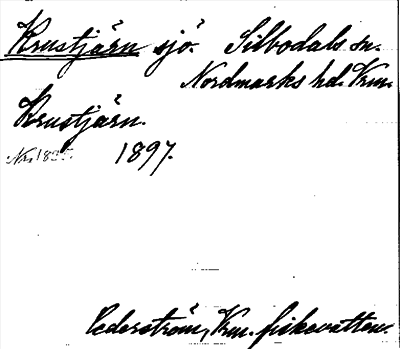 Krustjärn sjö. Silbodals sn.
Nordmarks hd. Vrm.
Krustjärn.
1897.
Cederström, Vrm. fiskevatten.